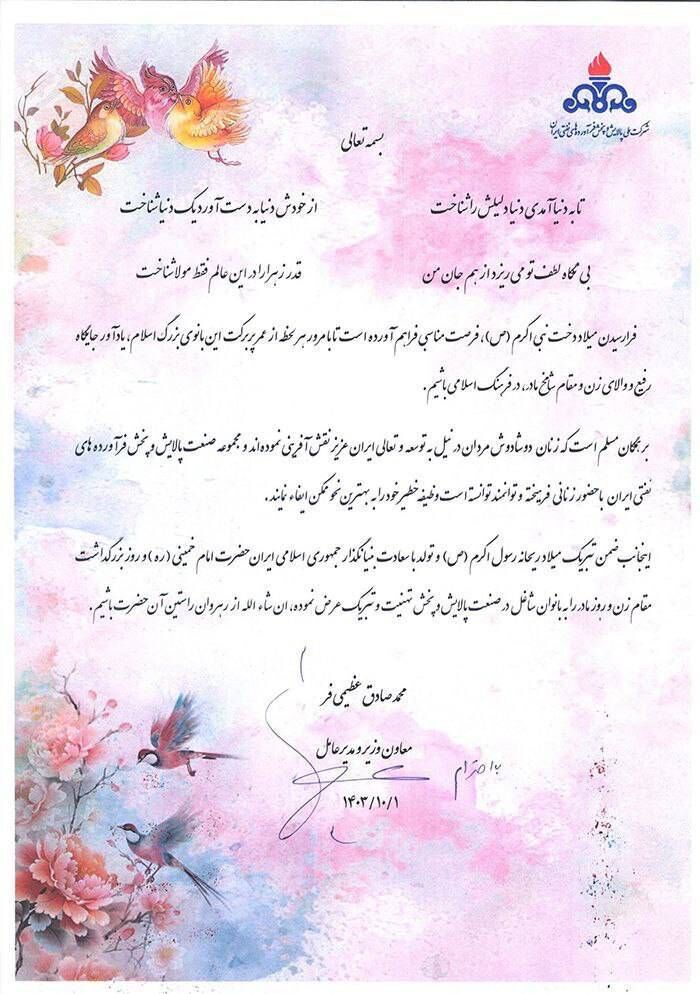 شرکت ملی پالایش و پخش فرآورده های نفتی ایران
بسمه تعالی
تا به دنیا آمدی دنیا دلیلش را شناخت از خودش دنیا به دست آورد یک دنیا شناخت
بی نگاه لطف تو می ریزد از هم جان من قدر زهرا را در این عالم فقط مولا شناخت
فرارسیدن میلاد دخت نبی اکرم (ص)، فرصت مناسبی فراهم آورده است تا با مرور هر لحظه از عمر پربرکت این بانوی بزرگ اسلام، یادآور جایگاه
رفیع و والای زن و مقام شامخ مادر، در فرهنگ اسلامی باشیم.
بر همگان مسلم است که زنان دوشادوش مردان در نیل به توسعه و تعالی ایران عزیز نقش آفرینی نموده اند و مجموعه صنعت پالایش و پخش فرآورده های
نفتی ایران با حضور زنانی فرهیخته و توانمند توانسته است وظیفه خطیر خود را به بهترین نحو ممکن ایفاء نمایند.
اینجانب ضمن تبریک میلاد ریحانه رسول اکرم (ص) و تولد با سعادت بنیانگذار جمهوری اسلامی ایران حضرت امام خمینی (ره) و روز بزرگداشت
مقام زن و روز مادر را به بانوان شاغل در صنعت پالایش و پخش تهنیت و تبریک عرض نموده، ان شاء الله از رهروان راستین آن حضرت باشیم.
محمد صادق عظیمی فر
معاون وزیر و مدیرعامل
با احترام
۱۴۰۳/۱۰/۱